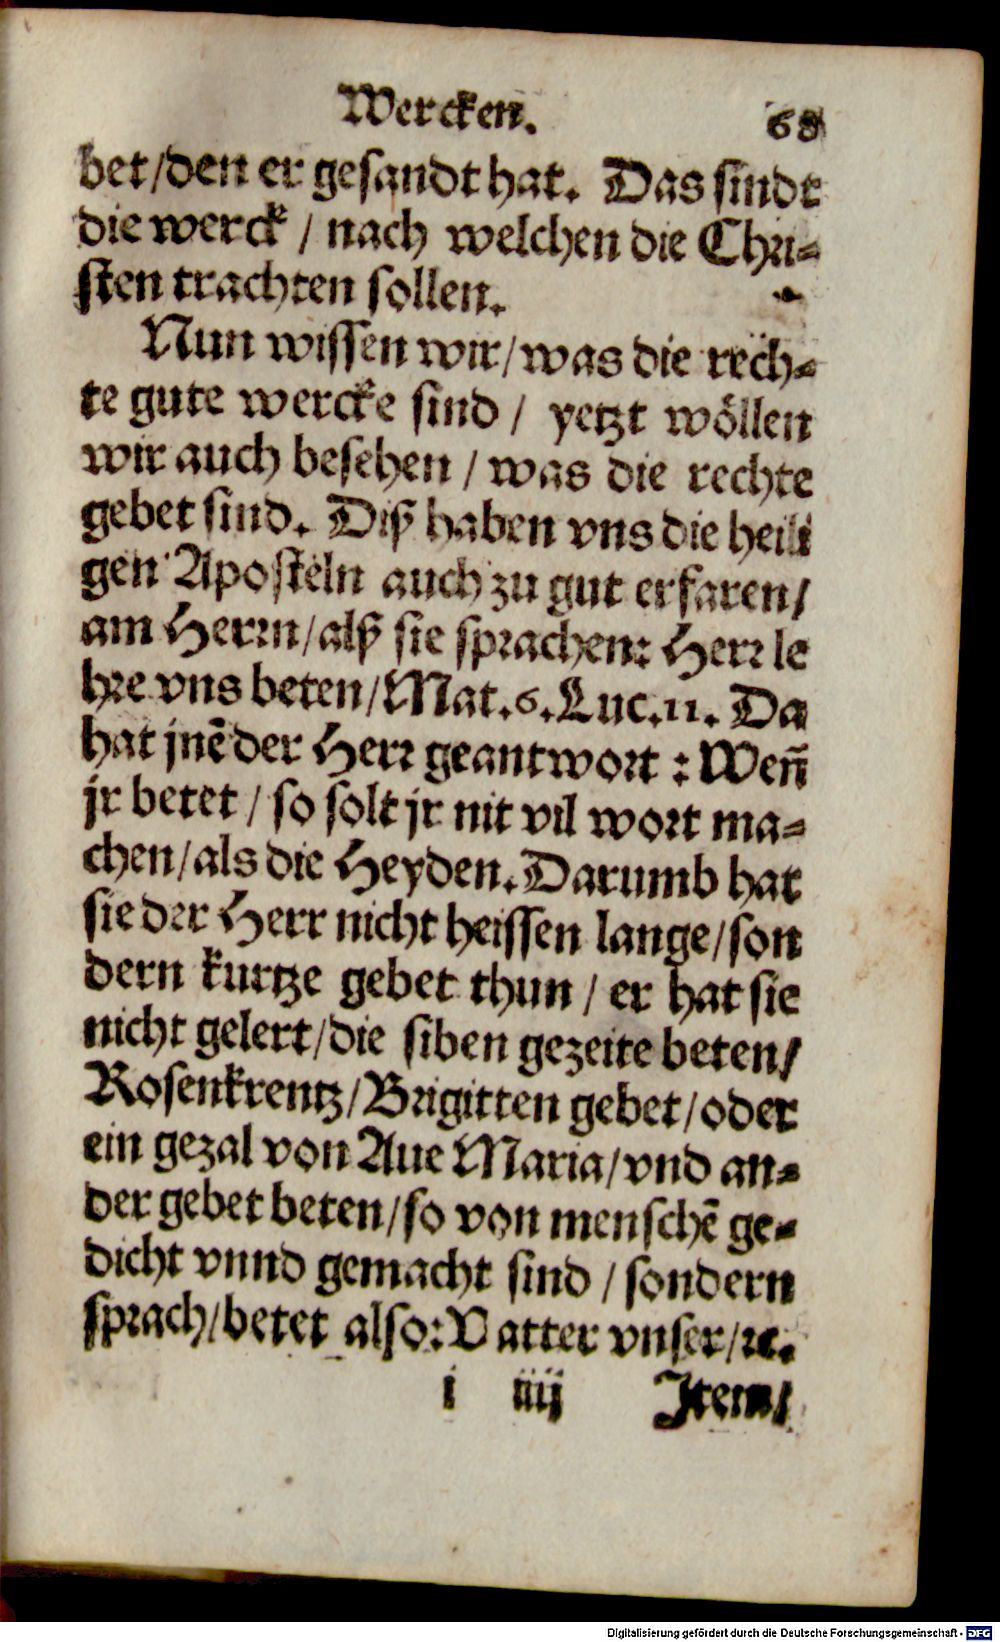 Wercken. 68
bet/den er gesandt hat. Das sindt
die werck / nach welchen die Chri-
sten trachten sollen.
Nun wissen wir/was die rech-
te gute wercke sind / yetzt wöllen
wir auch besehen / was die rechte
gebet sind. Diß haben vns die heili
gen Aposteln auch zu gut erfaren/
am Herrn/alß sie sprachen: Herr le
hre vns beten/Mat.6.Luc.11. Da
hat jnē der Herr geantwort : Weñ
jr betet / so solt jr nit vil wort ma-
chen/als die Heyden. Darumb hat
sie der Herr nicht heissen lange/son
dern kurtze gebet thun / er hat sie
nicht gelert/die siben gezeite beten/
Rosenkrentz/Brigitten gebet/oder
ein gezal von Aue Maria/vnd an-
der gebet beten/so von menschē ge-
dicht vnnd gemacht sind / sondern
sprach/betet also: Vatter vnser/ꝛc.
i iiij Item/
Digitalisierung gefördert durch die Deutsche Forschungsgemeinschaft - DFG